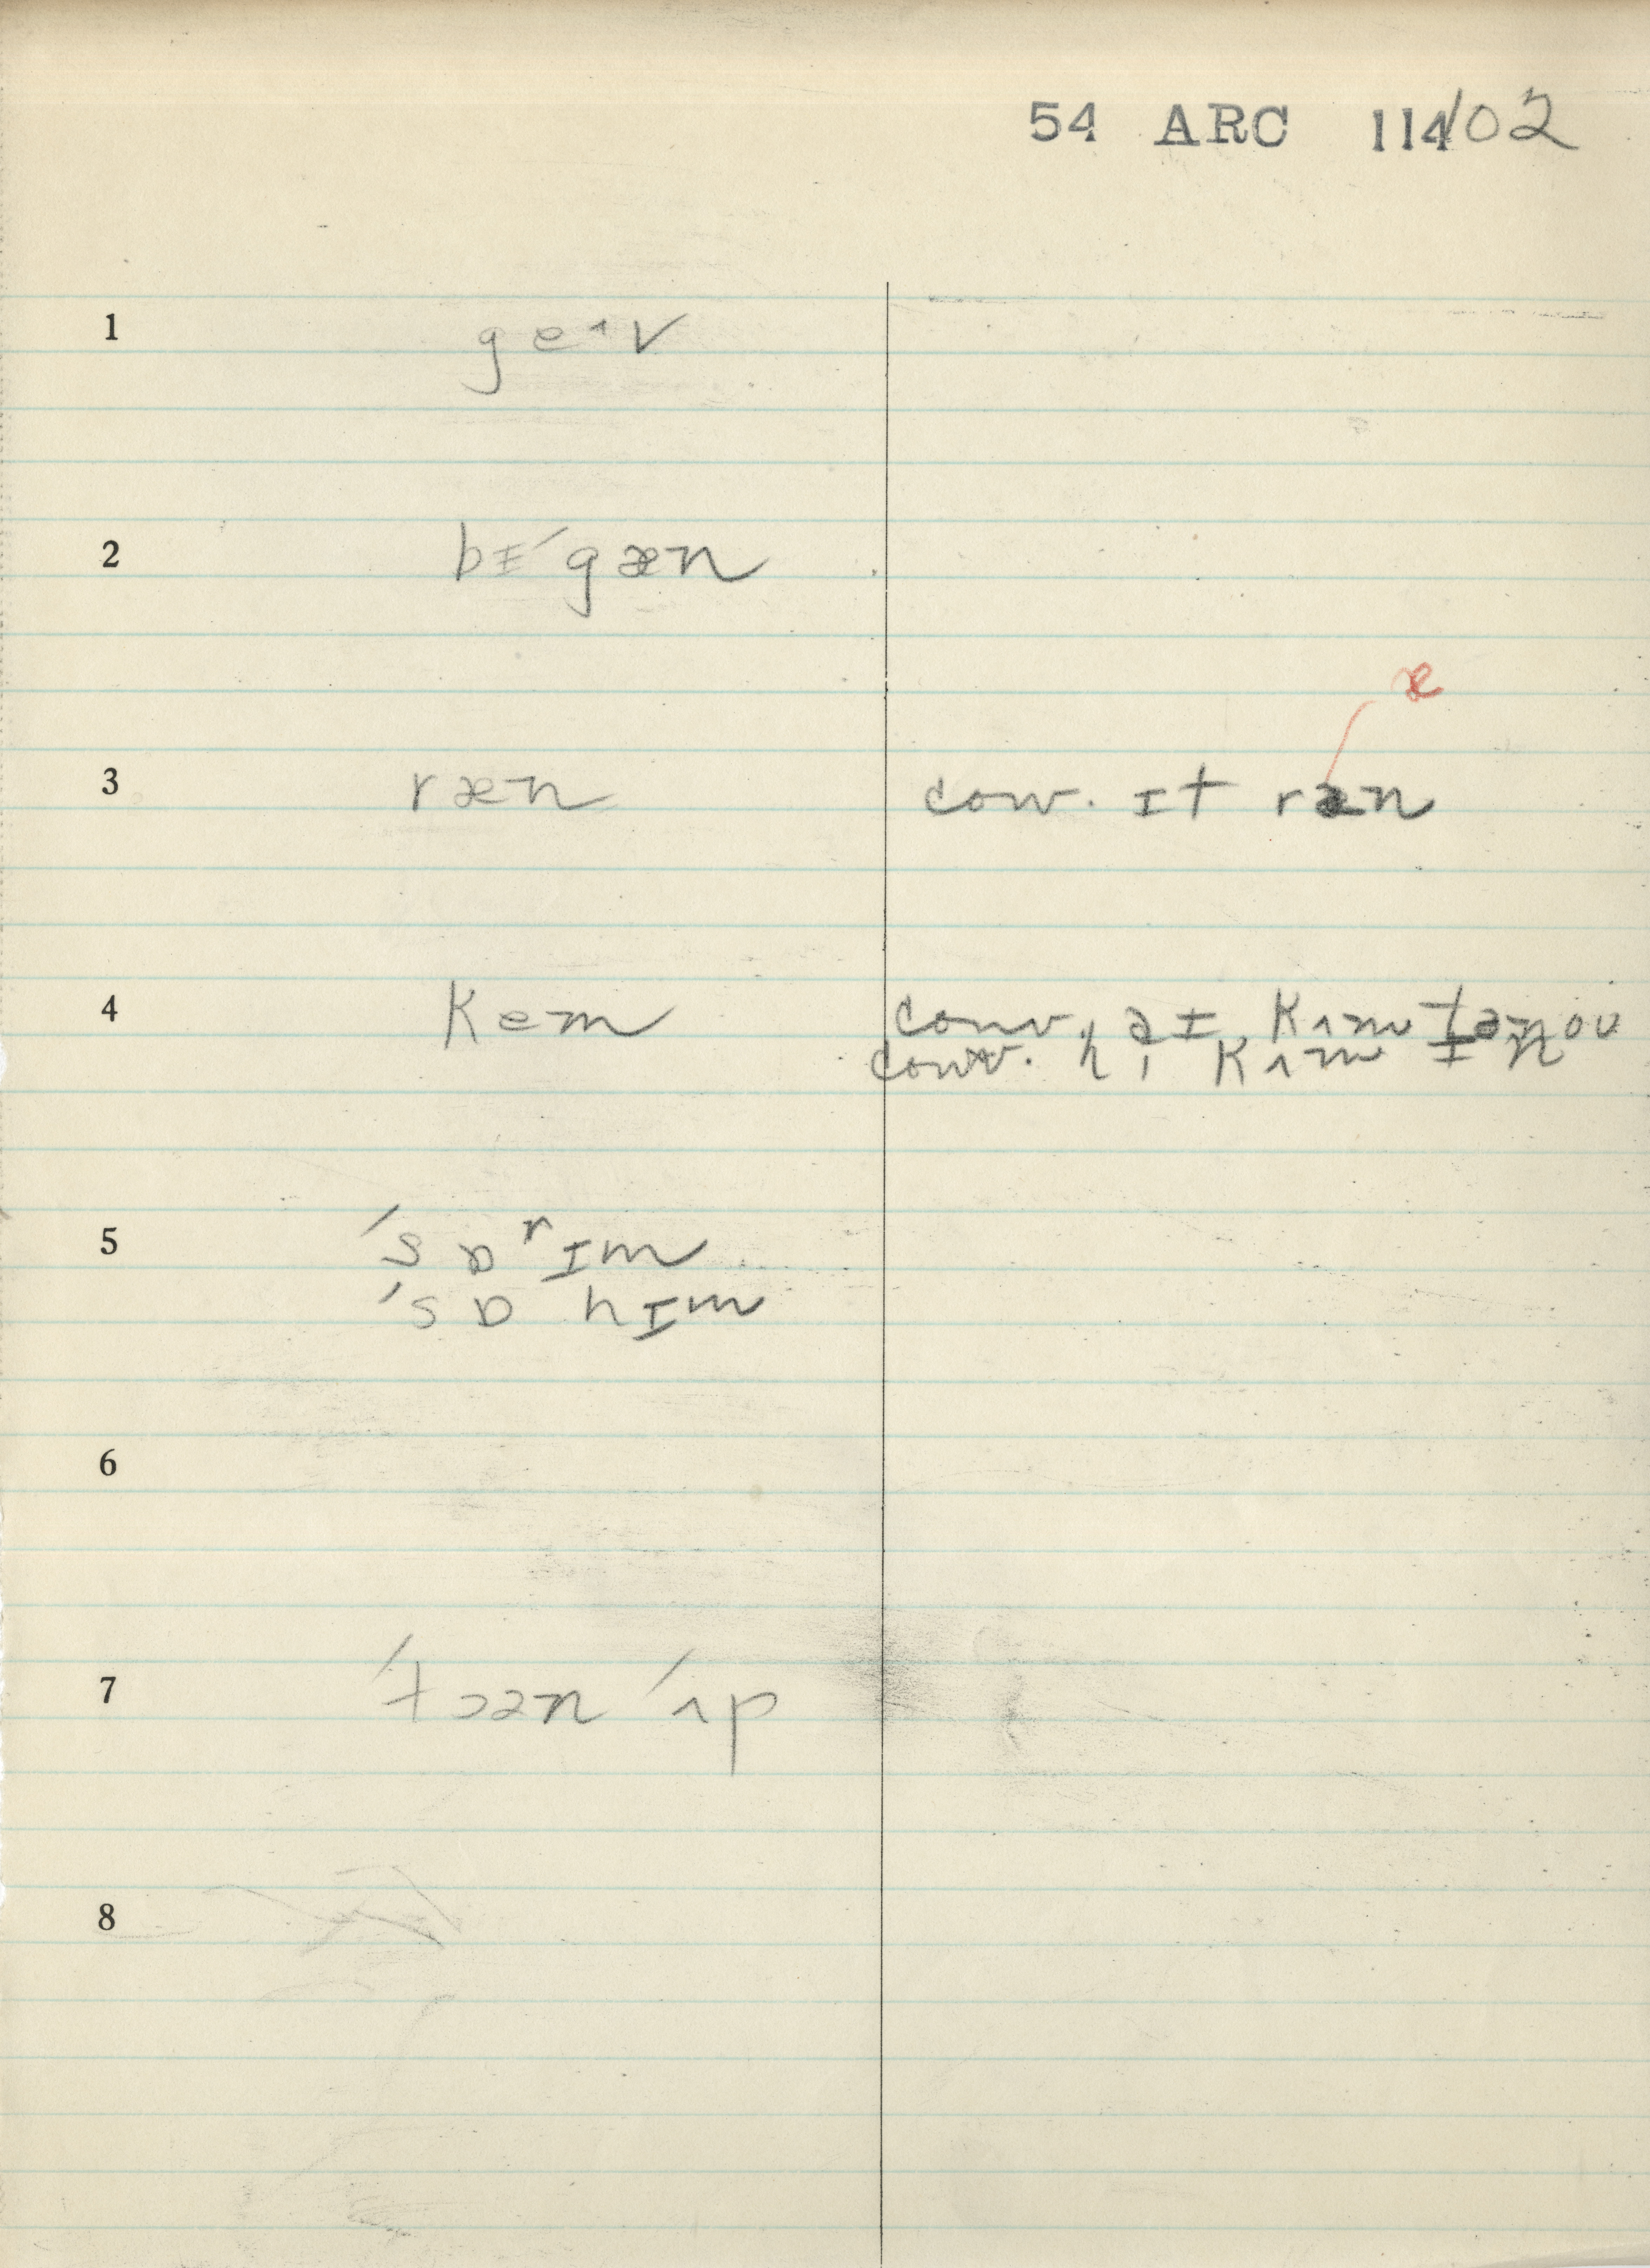 54 ARC 114/02
1 ge˄v
2 bɪ´gæn
3 ræn conv. ɪt ræn
æ
4 kem
conv. aɪ kʌm tənoʊ
conv. hi kʌm ɪn
5 ´sɒʳɪm
´sɒ hɪm
6
7 ´tɔən ´ʌp
8